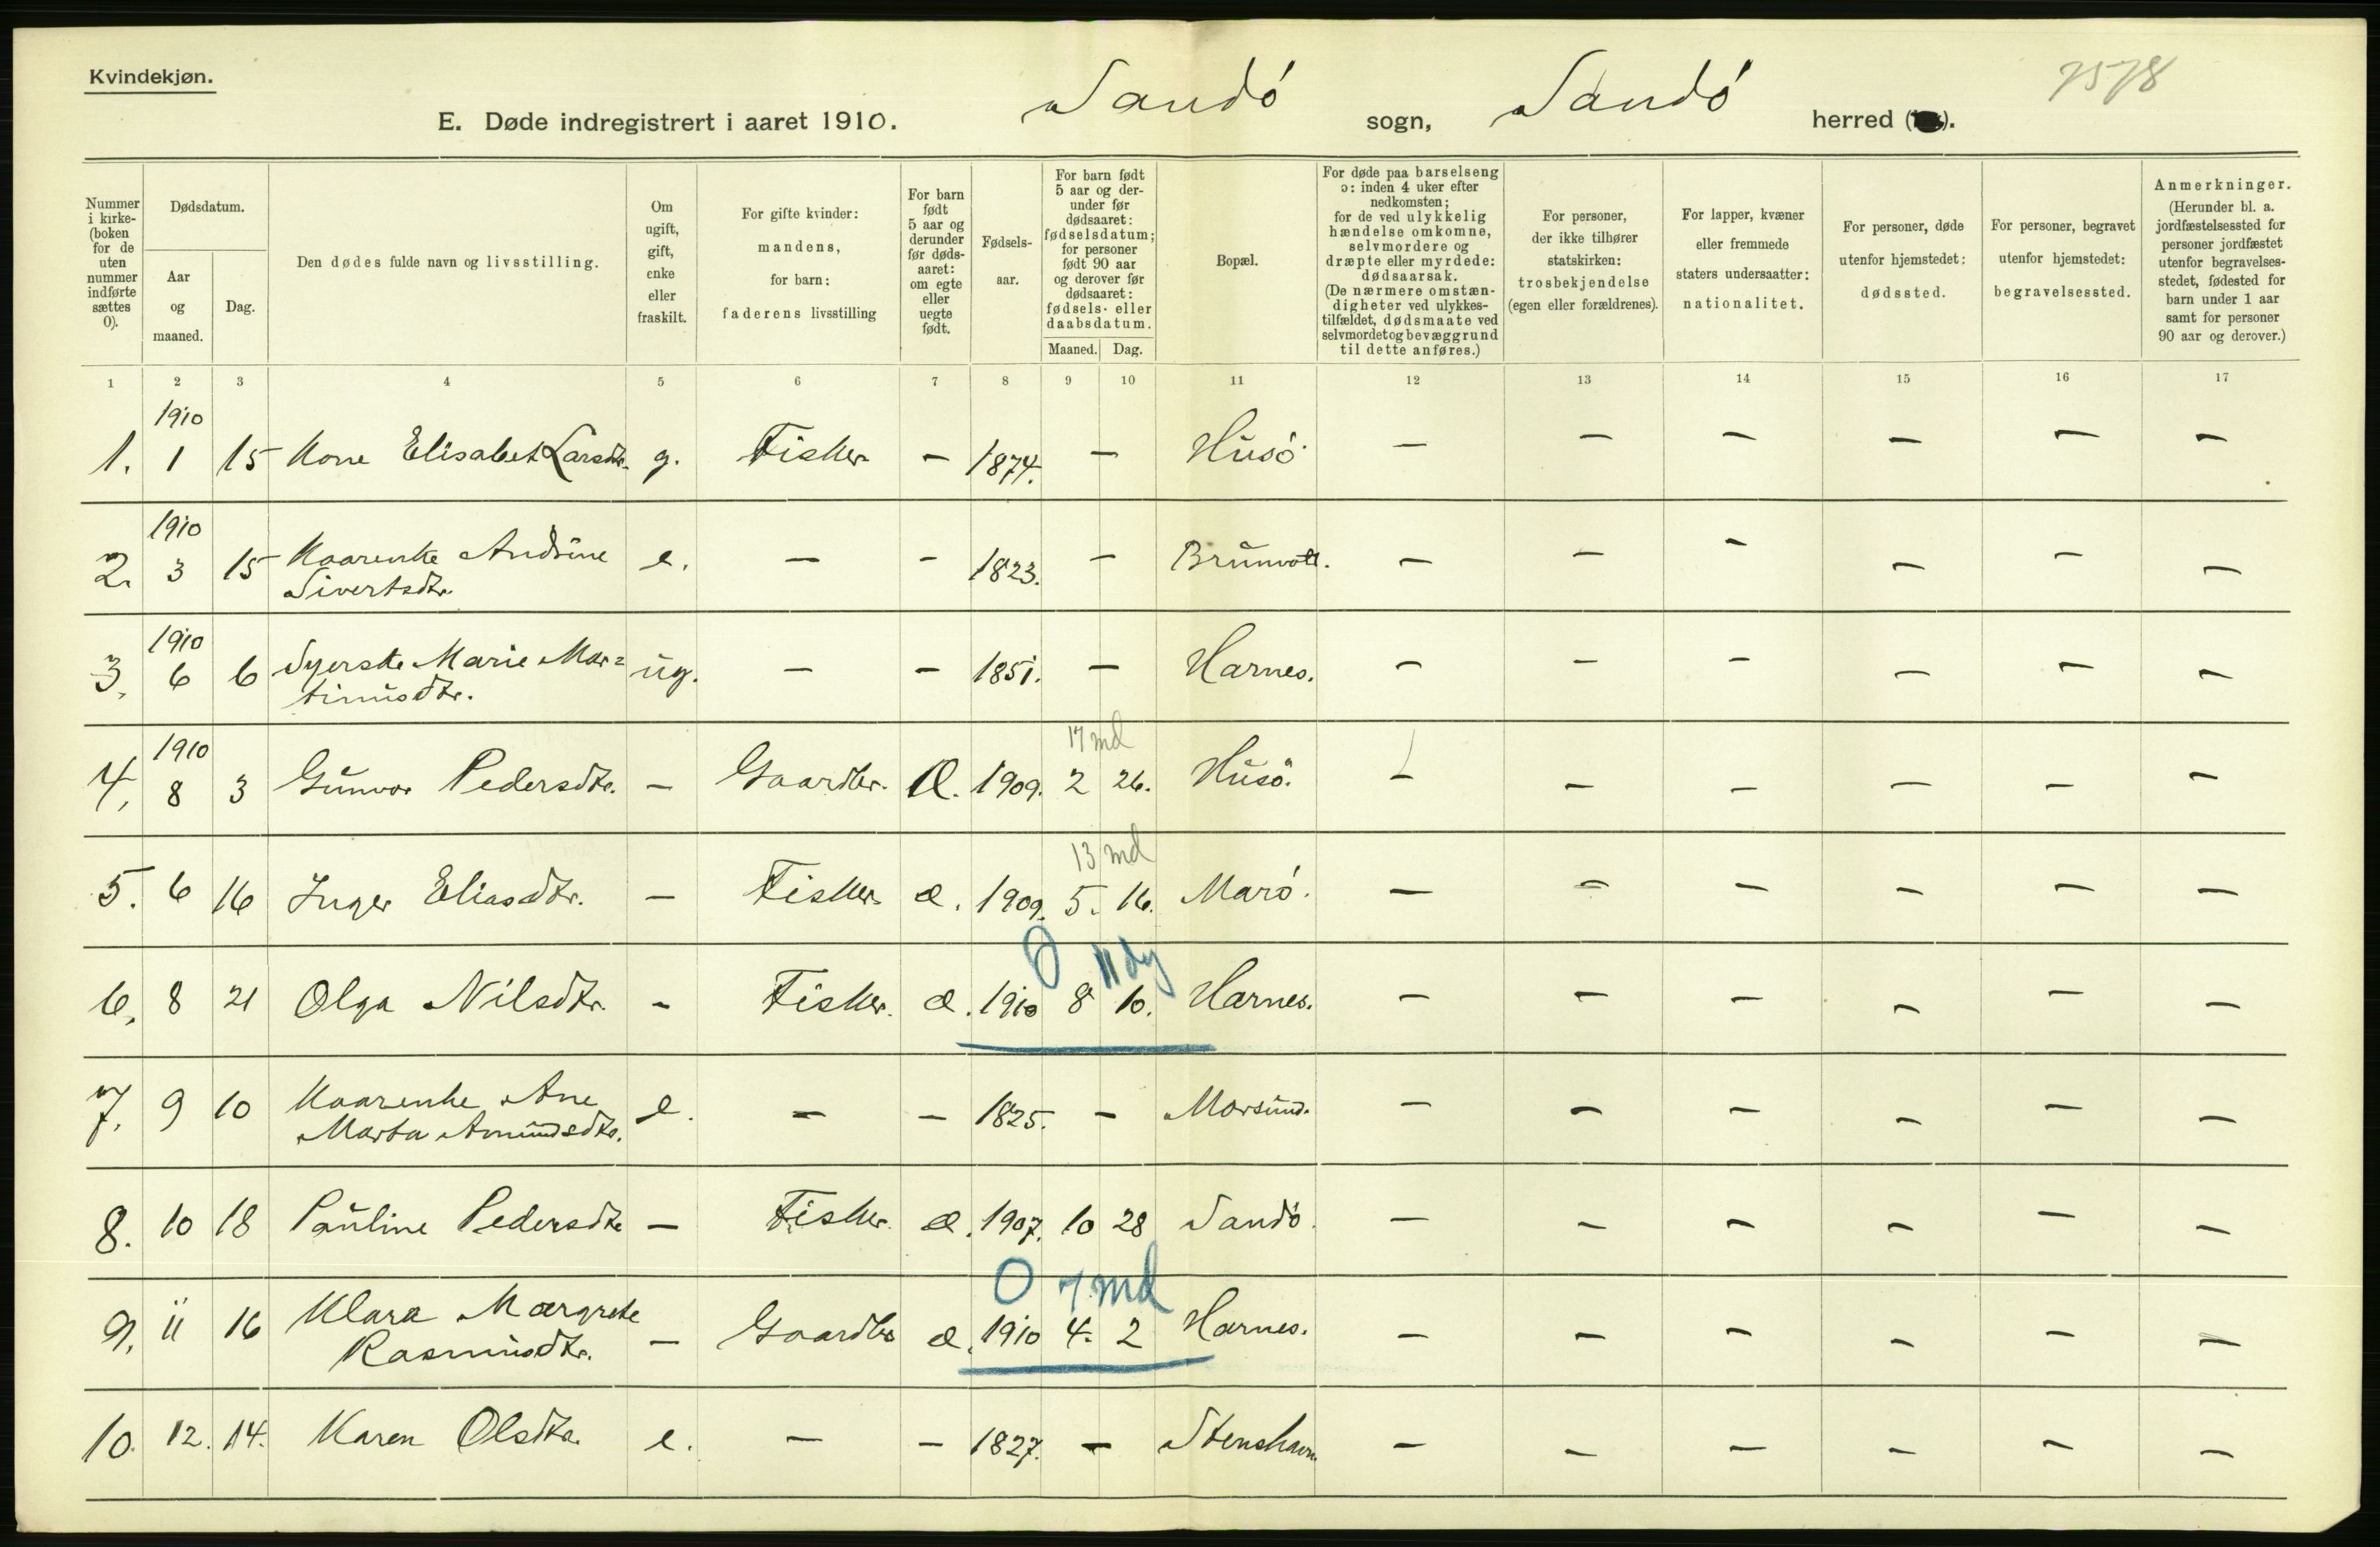 Kvindekjøn.
E. Døde indregistrert i aaret 1910. Sandö sogn, Sandö herred ( ). 7578
Nummer i kirke-(boken for de uten nummer indførte sættes 0).
Dødsdatum.
Aar og maaned.
Dag.
Den dødes fulde navn og livsstilling.
Om ugift, gift, enke eller fraskilt.
For gifte kvinder: mandens, for barn: faderens livsstilling
For barn født 5 aar og derunder før døds-aaret: om egte eller uegte født.
Fødsels-aar.
For barn født 5 aar og der-under før dødsaaret: fødselsdatum; for personer født 90 aar og derover før dødsaaret: fødsels- eller daabsdatum.
Maaned. Dag.
Bopæl.
For døde paa barselseng ɔ: inden 4 uker efter nedkomsten; for de ved ulykkelig hændelse omkomne, selvmordere og dræpte eller myrdede: dødsaarsak. (De nærmere omstæn-digheter ved ulykkes-tilfældet, dødsmaate ved selvmordet og bevæggrund til dette anføres.)
For personer, der ikke tilhører statskirken: trosbekjendelse (egen eller forældrenes).
For lapper, kvæner eller fremmede staters undersaatter: nationalitet.
For personer, døde utenfor hjemstedet: dødssted.
For personer, begravet utenfor hjemstedet: begravelsessted.
Anmerkninger. (Herunder bl. a. jordfæstelsessted for personer jordfæstet utenfor begravelses-stedet, fødested for barn under 1 aar samt for personer 90 aar og derover.)
1 2 3 4 5 6 7 8 9 10 11 12 13 14 15 16 17
1910
1. 1 15 Kone Elisabet Larsdtr. g. Fisker - 1874. - Husö - - - - - -
1910
2. 3 15 Kaarenke Andrine e. - - 1823. - - - - - - -
Sivertsdtr.
1910
3. 6 6 Syerske Marie Mar= ug. - - 1851. - Harnes. - - - - - -
tinusdtr.
1910 17 md
4. 8 3 Gunvor Pedersdtr. - Gaardbr. Æ. 1909. 2 26. Husö. - - - - - -
13 md
5. 6 16 Inger Eliasdtr. - Fisker æ. 1909. 5. 16. Marö. - - - - - -
0 11 dg
6. 8 21 Olga Nilsdtr. - Fisker. æ. 1910 8 10. Harnes. - - - - - -
7. 9 10 Kaarenke Ane e. - - 1825. - Morsund. - - - - - -
Marta Amundsdtr.
8. 10 18 Pauline Pedersdtr - Fisker. æ. 1907. 10 28 Sandö. - - - - - -
0 7 md
9. 11 16 Klara Margrete - Gaardbr æ. 1910 4. 2 Harnes. - - - - - -
Rasmusdtr.
10. 12. 14. Karen Olsdtr. e. - - 1827. - Stenshavn. - - - - - -